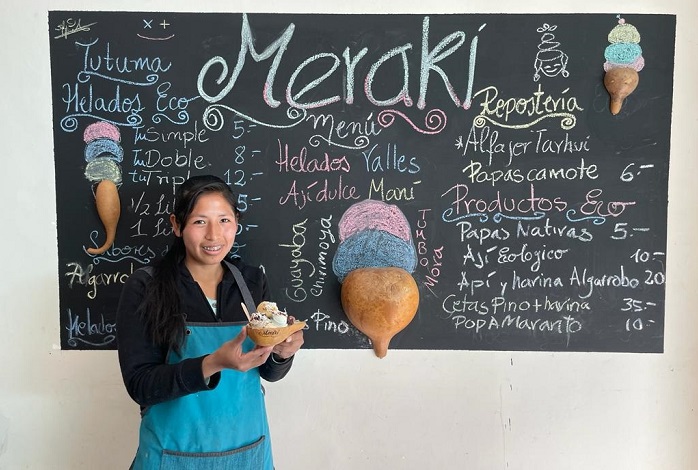 Meraki
Tutuma
Helados Eco
TuSimple 5.-
TuDoble 8.-
tuTripl 12.-
1/2 Li
1 Li
Sabor
Algarrob
Helado
Menú
Helados Valles
Ají dulce Maní
Guayaba
Chirimoya
Tumbo
Mora
Pino
Repostería
*Alfajor Tarhui
Papas camote 6.-
Productos Eco
Papas Nativas 5.-
Ají Ecologico 10.-
Apí y harina Algarrobo 20
Cetas Pino + harina 35.-
Pop Amaranto 10.-
Meraki